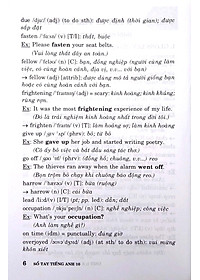 due /djuː/ (adj) (to do sth): được định (thời gian); được
sắp đặt
fasten /ˈfɑːsn/ (v) [T/I]: thắt, buộc
Ex: Please fasten your seat belts.
(Vui lòng thắt dây an toàn.)
fellow /ˈfeləʊ/ (n) [C]: bạn, đồng nghiệp (người cùng làm
việc, có cùng hoàn cảnh, địa vị, v.v... với bạn)
→ fellow (adj) (attrib): được dùng mô tả người giống bạn
hoặc có cùng hoàn cảnh với bạn
frightening /ˈfraɪtnɪŋ/ (adj) = scary: kinh hoàng; kinh khủng;
rùng rợn.
Ex: It was the most frightening experience of my life.
(Đó là trải nghiệm kinh hoàng nhất trong đời tôi.)
→ frighten /ˈfraɪtn/ (v) [T]: làm hoảng sợ; làm kinh hoàng
give up /ɡɪv ˈʌp/ (phrv): bỏ; từ bỏ
Ex: She gave up her job and started writing poetry.
(Cô ấy bỏ việc và bắt đầu sáng tác thơ)
go off / ɡəʊ ˈɒf/ (phrv): (đồng hồ; chuông, v.v...) reo
Ex: The thieves ran away when the alarm went off.
(Bọn trộm bỏ chạy khi chuông báo động reo.)
harrow /ˈhærəʊ/ (v) [T/I]: bừa (ruộng)
→ harrow (n) [C]: cái bừa
lead /liːd/ (v) [T/I] (pt, pp. led): dẫn; dắt
occupation /ˌɒkjuˈpeɪʃn/ (n) [C]: nghề nghiệp; công việc
Ex: What's your occupation?
(Anh làm nghề gì?)
on time (idm) = punctually: đúng giờ
overjoyed /ˌəʊvəˈdʒɔɪd/ (adj) (at sth/ to do sth): vui mừng
khôn xiết
6 SỔ TAY TIẾNG ANH 10